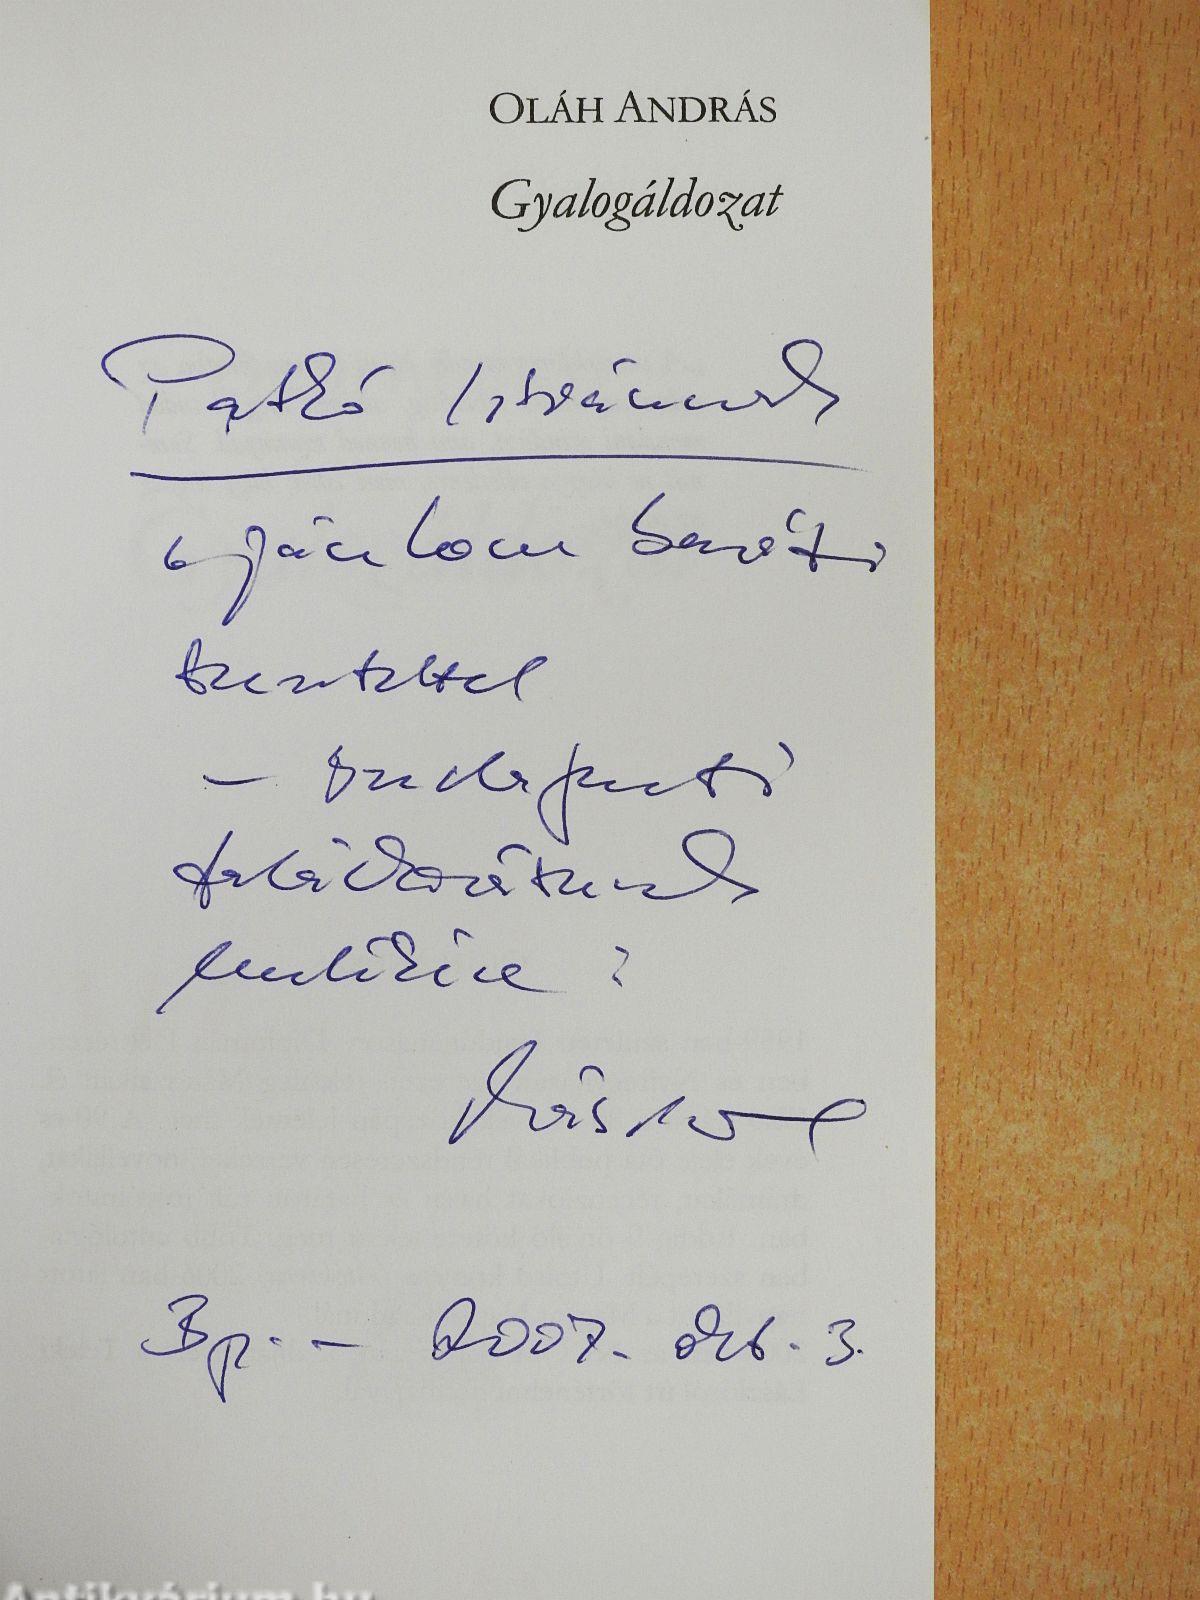 OLÁH ANDRÁS
Gyalogáldozat
Patkó Istvánnak
ajánlom baráti
szeretettel
– budapesti
találkozásunk
emlékére
Bp. – 2007. okt. 3.
Antikvárium.hu